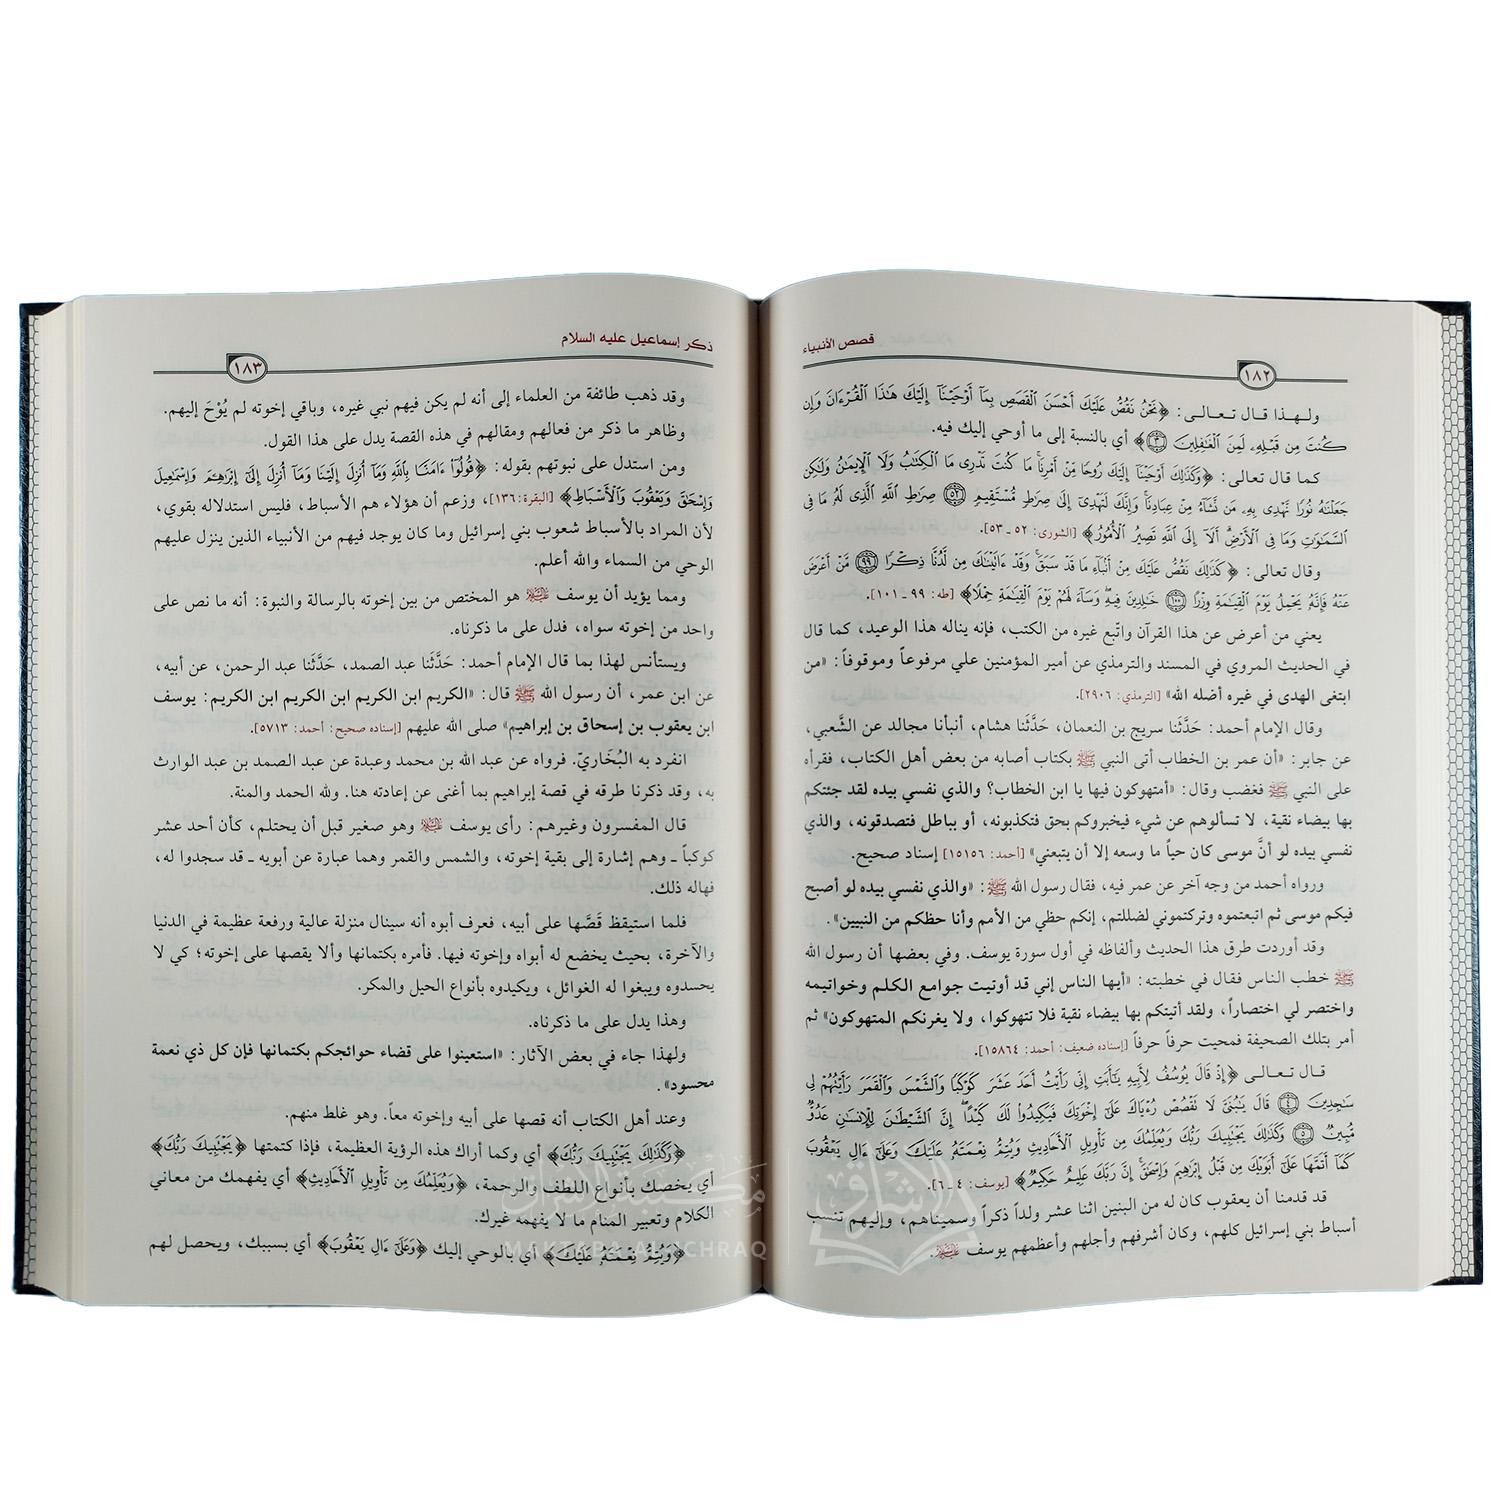 قصص الأنبياء
١٨٢
ولـهـذا قال تـعـالـى: ﴿نَحْنُ نَقُصُّ عَلَيْكَ أَحْسَنَ ٱلْقَصَصِ بِمَآ أَوْحَيْنَآ إِلَيْكَ هَـٰذَا ٱلْقُرْءَانَ وَإِن
كُنتَ مِن قَبْلِهِۦ لَمِنَ ٱلْغَـٰفِلِينَ ۝٣﴾ أي بالنسبة إلى ما أوحي إليك فيه.
كما قال تعالى: ﴿وَكَذَٰلِكَ أَوْحَيْنَآ إِلَيْكَ رُوحًا مِّنْ أَمْرِنَا ۚ مَا كُنتَ تَدْرِى مَا ٱلْكِتَـٰبُ وَلَا ٱلْإِيمَـٰنُ وَلَـٰكِن
جَعَلْنَـٰهُ نُورًا نَّهْدِى بِهِۦ مَن نَّشَآءُ مِنْ عِبَادِنَا ۚ وَإِنَّكَ لَتَهْدِىٓ إِلَىٰ صِرَٰطٍ مُّسْتَقِيمٍ ۝٥٢ صِرَٰطِ ٱللَّهِ ٱلَّذِى لَهُۥ مَا فِى
ٱلسَّمَـٰوَٰتِ وَمَا فِى ٱلْأَرْضِ ۗ أَلَآ إِلَى ٱللَّهِ تَصِيرُ ٱلْأُمُورُ﴾ [الشورى: ٥٢ ـ ٥٣].
وقال تعالى: ﴿كَذَٰلِكَ نَقُصُّ عَلَيْكَ مِنْ أَنۢبَآءِ مَا قَدْ سَبَقَ ۚ وَقَدْ ءَاتَيْنَـٰكَ مِن لَّدُنَّا ذِكْرًا ۝٩٩ مَّنْ أَعْرَضَ
عَنْهُ فَإِنَّهُۥ يَحْمِلُ يَوْمَ ٱلْقِيَـٰمَةِ وِزْرًا ۝١٠٠ خَـٰلِدِينَ فِيهِ ۖ وَسَآءَ لَهُمْ يَوْمَ ٱلْقِيَـٰمَةِ حِمْلًا﴾ [طه: ٩٩ ـ ١٠١].
يعني من أعرض عن هذا القرآن واتّبع غيره من الكتب، فإنه يناله هذا الوعيد، كما قال
في الحديث المروي في المسند والترمذي عن أمير المؤمنين علي مرفوعاً وموقوفاً: «من
ابتغى الهدى في غيره أضله الله» [الترمذي: ٢٩٠٦].
وقال الإمام أحمد: حَدَّثَنا سريج بن النعمان، حَدَّثَنا هشام، أنبأنا مجالد عن الشَّعبي،
عن جابر: «أن عمر بن الخطاب أتى النبي ﷺ بكتاب أصابه من بعض أهل الكتاب، فقرأه
على النبي ﷺ فغضب وقال: «أمتهوكون فيها يا ابن الخطاب؟ والذي نفسي بيده لقد جئتكم
بها بيضاء نقية، لا تسألوهم عن شيء فيخبروكم بحق فتكذبونه، أو بباطل فتصدقونه، والذي
نفسي بيده لو أنَّ موسى كان حياً ما وسعه إلا أن يتبعني» [أحمد: ١٥١٥٦] إسناد صحيح.
ورواه أحمد من وجه آخر عن عمر فيه، فقال رسول الله ﷺ: «والذي نفسي بيده لو أصبح
فيكم موسى ثم اتبعتموه وتركتموني لضللتم، إنكم حظي من الأمم وأنا حظكم من النبيين».
وقد أوردت طرق هذا الحديث وألفاظه في أول سورة يوسف. وفي بعضها أن رسول الله
ﷺ خطب الناس فقال في خطبته: «أيها الناس إني قد أوتيت جوامع الكلم وخواتيمه
واختصر لي اختصاراً، ولقد أتيتكم بها بيضاء نقية فلا تتهوكوا، ولا يغرنكم المتهوكون» ثم
أمر بتلك الصحيفة فمحيت حرفاً حرفاً [إسناده ضعيف: أحمد: ١٥٨٦٤].
قال تـعـالـى ﴿إِذْ قَالَ يُوسُفُ لِأَبِيهِ يَـٰٓأَبَتِ إِنِّى رَأَيْتُ أَحَدَ عَشَرَ كَوْكَبًا وَٱلشَّمْسَ وَٱلْقَمَرَ رَأَيْتُهُمْ لِى
سَـٰجِدِينَ ۝٤ قَالَ يَـٰبُنَىَّ لَا تَقْصُصْ رُءْيَاكَ عَلَىٰٓ إِخْوَتِكَ فَيَكِيدُوا۟ لَكَ كَيْدًا ۖ إِنَّ ٱلشَّيْطَـٰنَ لِلْإِنسَـٰنِ عَدُوٌّ
مُّبِينٌ ۝٥ وَكَذَٰلِكَ يَجْتَبِيكَ رَبُّكَ وَيُعَلِّمُكَ مِن تَأْوِيلِ ٱلْأَحَادِيثِ وَيُتِمُّ نِعْمَتَهُۥ عَلَيْكَ وَعَلَىٰٓ ءَالِ يَعْقُوبَ
كَمَآ أَتَمَّهَا عَلَىٰٓ أَبَوَيْكَ مِن قَبْلُ إِبْرَٰهِيمَ وَإِسْحَـٰقَ ۚ إِنَّ رَبَّكَ عَلِيمٌ حَكِيمٌ﴾ [يوسف: ٤ ـ ٦].
قد قدمنا أن يعقوب كان له من البنين اثنا عشر ولداً ذكراً وسميناهم، وإليهم تنسب
أسباط بني إسرائيل كلهم، وكان أشرفهم وأجلهم وأعظمهم يوسف عليه السلام.
ذكر إسماعيل عليه السلام
١٨٣
وقد ذهب طائفة من العلماء إلى أنه لم يكن فيهم نبي غيره، وباقي إخوته لم يُوْحَ إليهم.
وظاهر ما ذكر من فعالهم ومقالهم في هذه القصة يدل على هذا القول.
ومن استدل على نبوتهم بقوله: ﴿قُولُوٓا۟ ءَامَنَّا بِٱللَّهِ وَمَآ أُنزِلَ إِلَيْنَا وَمَآ أُنزِلَ إِلَىٰٓ إِبْرَٰهِـۧمَ وَإِسْمَـٰعِيلَ
وَإِسْحَـٰقَ وَيَعْقُوبَ وَٱلْأَسْبَاطِ﴾ [البقرة: ١٣٦]، وزعم أن هؤلاء هم الأسباط، فليس استدلاله بقوي،
لأن المراد بالأسباط شعوب بني إسرائيل وما كان يوجد فيهم من الأنبياء الذين ينزل عليهم
الوحي من السماء والله أعلم.
ومما يؤيد أن يوسف عليه السلام هو المختص من بين إخوته بالرسالة والنبوة: أنه ما نص على
واحد من إخوته سواه، فدل على ما ذكرناه.
ويستأنس لهذا بما قال الإمام أحمد: حَدَّثَنا عبد الصمد، حَدَّثَنا عبد الرحمن، عن أبيه،
عن ابن عمر، أن رسول الله ﷺ قال: «الكريم ابن الكريم ابن الكريم ابن الكريم: يوسف
ابن يعقوب بن إسحاق بن إبراهيم» صلى الله عليهم [إسناده صحيح: أحمد: ٥٧١٣].
انفرد به البُخَاريّ. فرواه عن عبد الله بن محمد وعبدة عن عبد الصمد بن عبد الوارث
به، وقد ذكرنا طرقه في قصة إبراهيم بما أغنى عن إعادته هنا. ولله الحمد والمنة.
قال المفسرون وغيرهم: رأى يوسف عليه السلام وهو صغير قبل أن يحتلم، كأن أحد عشر
كوكباً ـ وهم إشارة إلى بقية إخوته، والشمس والقمر وهما عبارة عن أبويه ـ قد سجدوا له،
فهاله ذلك.
فلما استيقظ قَصَّها على أبيه، فعرف أبوه أنه سينال منزلة عالية ورفعة عظيمة في الدنيا
والآخرة، بحيث يخضع له أبواه وإخوته فيها. فأمره بكتمانها وألا يقصها على إخوته؛ كي لا
يحسدوه ويبغوا له الغوائل، ويكيدوه بأنواع الحيل والمكر.
وهذا يدل على ما ذكرناه.
ولهذا جاء في بعض الآثار: «استعينوا على قضاء حوائجكم بكتمانها فإن كل ذي نعمة
محسود».
وعند أهل الكتاب أنه قصها على أبيه وإخوته معاً. وهو غلط منهم.
﴿وَكَذَٰلِكَ يَجْتَبِيكَ رَبُّكَ﴾ أي وكما أراك هذه الرؤية العظيمة، فإذا كتمتها ﴿يَجْتَبِيكَ رَبُّكَ﴾
أي يخصك بأنواع اللطف والرحمة، ﴿وَيُعَلِّمُكَ مِن تَأْوِيلِ ٱلْأَحَادِيثِ﴾ أي يفهمك من معاني
الكلام وتعبير المنام ما لا يفهمه غيرك.
﴿وَيُتِمُّ نِعْمَتَهُۥ عَلَيْكَ﴾ أي بالوحي إليك ﴿وَعَلَىٰٓ ءَالِ يَعْقُوبَ﴾ أي بسببك، ويحصل لهم